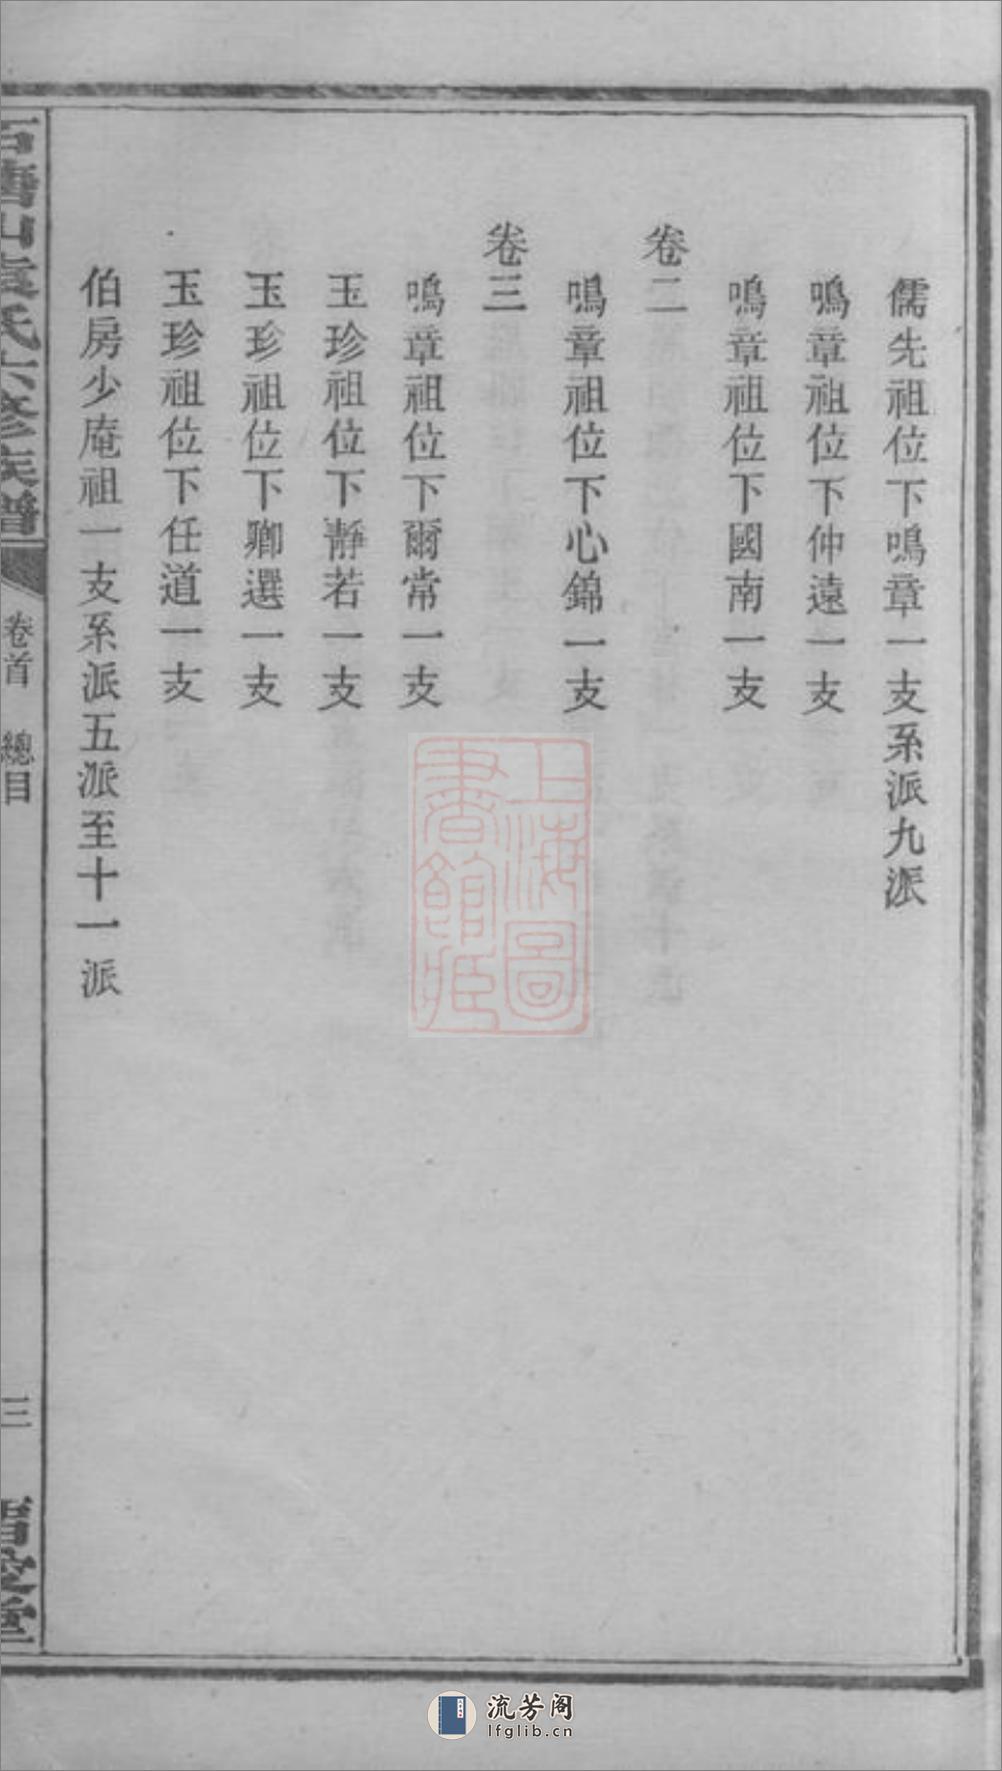 儒先祖位下鳴章一支系派九派
鳴章祖位下仲遠一支
鳴章祖位下國南一支
卷二
鳴章祖位下心錦一支
卷三
鳴章祖位下爾常一支
玉珍祖位下靜若一支
玉珍祖位下卿選一支
玉珍祖位下任道一支
伯房少庵祖一支系派五派至十一派
袁氏六修族譜
卷首 總目
三
堂
上海圖
書館藏
流芳阁
lfglib.cn